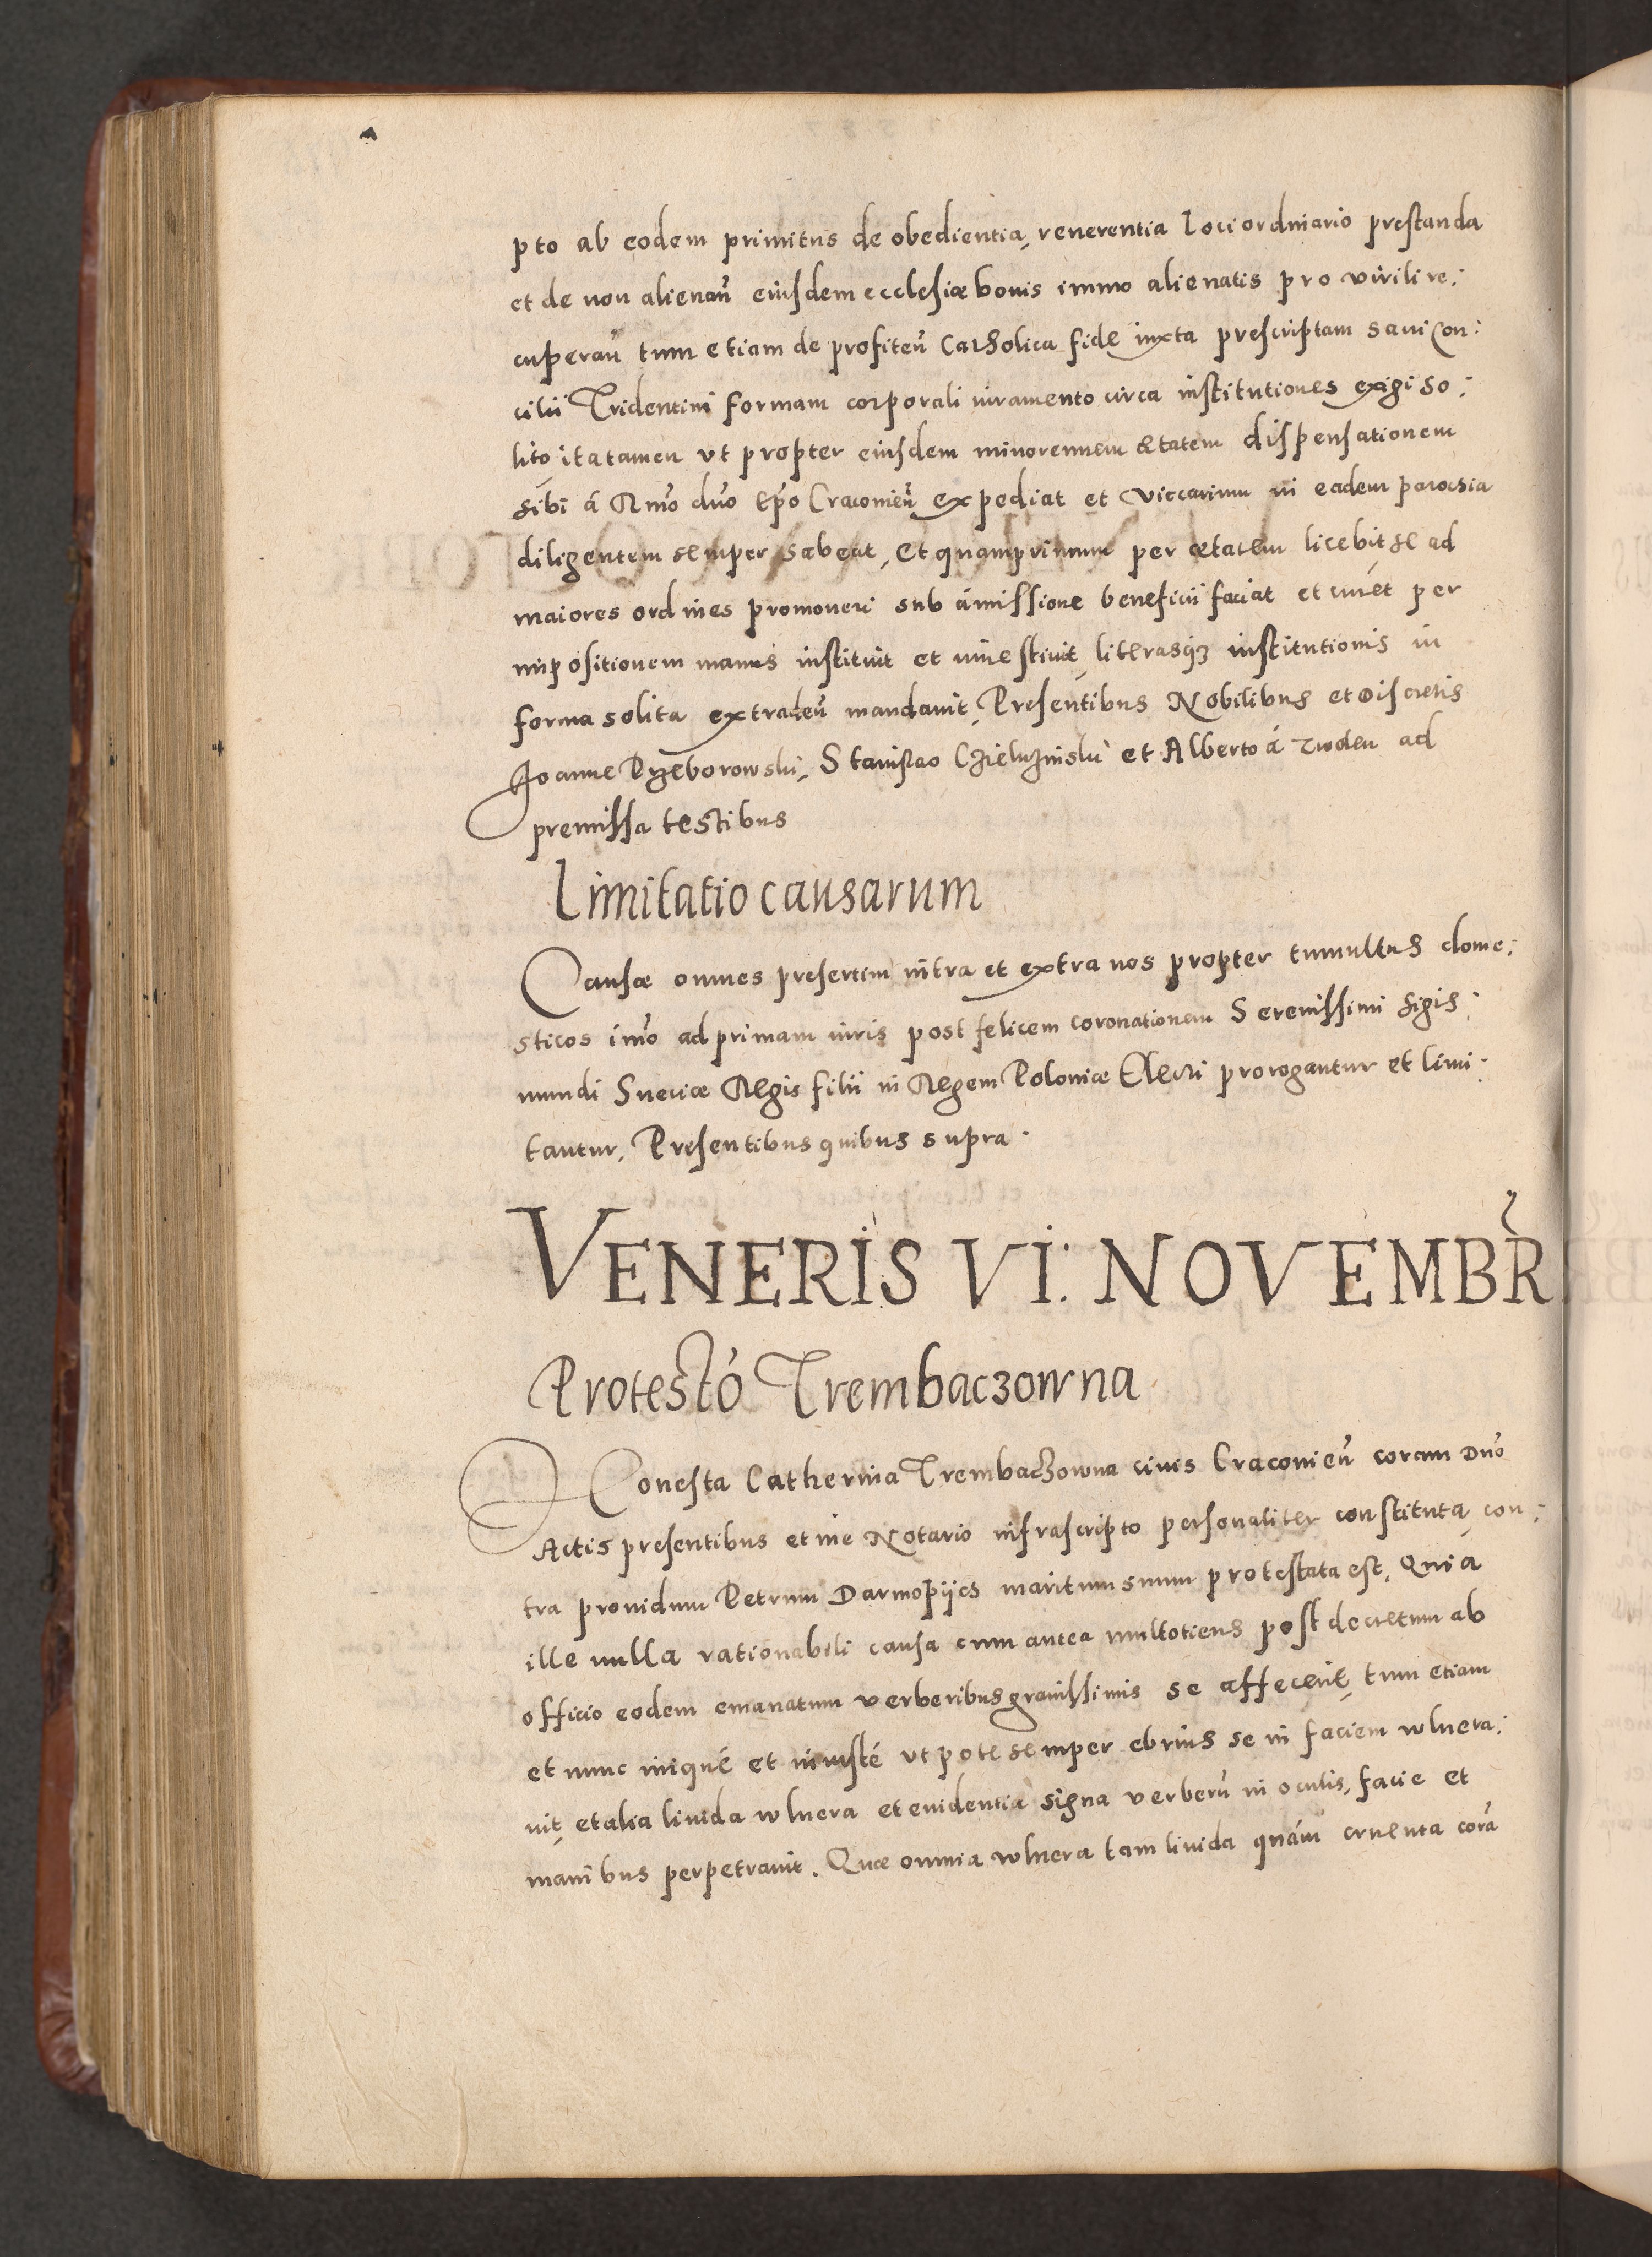 pto ab eodem primitus de obedientia, reuerentia Loci ordinario prestanda
et de non alienan̄ eiusdem ecclesiæ bonis immo alienatis pro virili re:
cuperan̄ tum etiam de profiten̄ Catholica fide iuxta prescriptam sacri Con:
cilii Tridentini formam corporali iuramento circa institutiones exigi so:
lito, ita tamen vt propter eiusdem minorennem ætatem dispensationem
sibi á Rmo dno Epo Cracouien̄ expediat et viccarium in eadem parochia
diligentem semper habeat, Et quamprimum per ætatem licebit se ad
maiores ordines promoueri sub ámissione beneficii faciat et curet per
impositionem manus instituit et inuestiuit, literasqꝫ institutionis in
forma solita extraden̄ mandauit, Presentibus Nobilibus et Discretis
Joanne Przeborowski, Stanislao et Alberto á ad
premissa testibus
Limitatio causarum
Causæ omnes presertim intra et extra nos propter tumultus dome:
sticos imo ad primam iuris post felicem coronationem Serenissimi Sigis:
mundi Sueciæ Regis filii in Regem Poloniæ Electi prorogantur et limi:
tantur, Presentibus quibus supra.
VENERIS VI: NOVEMBR
Protesto Trembaczowna
Honesta Catherina Trembaczowna ciuis Cracouien̄ coram Dno
Actis presentibus et me Notario infrascripto personaliter constituta, con:
tra prouidum Petrum Darmopijes maritum suum protestata est, Quia
ille nulla rationabili causa cum antea multotiens post decretum ab
officio eodem emanatum verberibus grauissimis se affecerit, tum etiam
et nunc iniqué et iniusté vt pote semper ebrius se in faciem wlnera:
uit, et alia liuida wlnera et euidentia signa verberū in oculis, facie et
manibus perpetrauit. Quæ omnia wlnera tam liuida quám cruenta corā